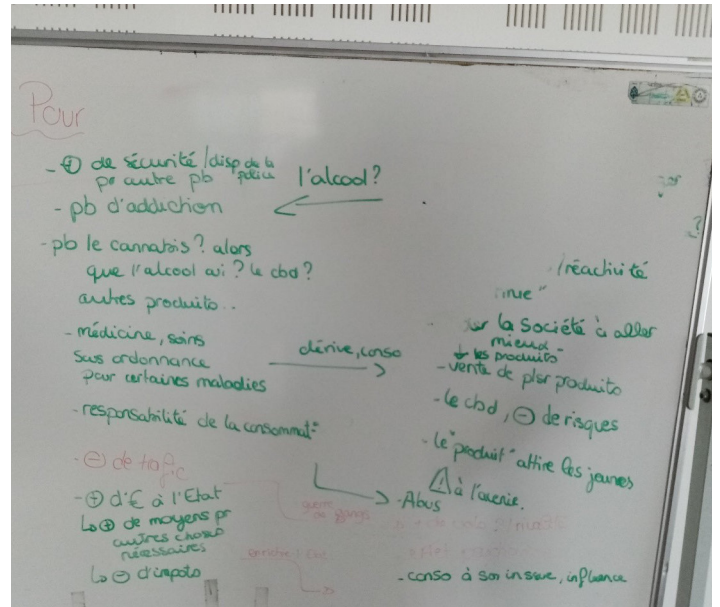 Pour
- ⊕ de sécurité / disp de la police
pr autre pb
l'alcool ?
- pb d'adduction
- pb le cannabis ? alors
que l'alcool oui ? le cbd ?
autres produits..
- médicine, soins
sans ordonnance
pour certaines maladies
dérive, conso
- responsabilité de la consommat°
- ⊖ de trafic
- ⊕ d'€ à l'Etat
↳ ⊕ de moyens pr
autres choses
nécessaires
↳ ⊖ d'impots
guerre
de gangs
enrichir l'Etat
?
/réactivité
la société à aller
mieux
les produits
- vente de plsr produits
- le cbd, ⊖ de risques
- le "produit" attire les jeunes
⚠ à l'avenir.
- Abus
- conso à son insue, influence